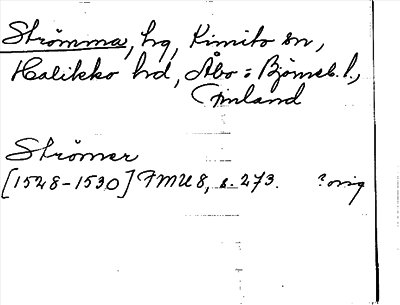 Strömma, hg, Kimito sn,
Halikko hd, Åbo = Björneb. l.,
Finland
Strömer
[1528-1530] FMU 8, s. 273. ? orig